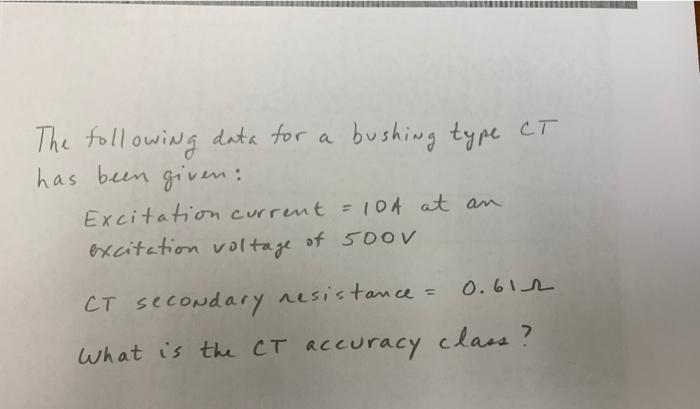 The following data for a bushing type CT
has been given:
Excitation current = 10A at an
excitation voltage of 500V
CT secondary resistance = 0.61Ω
What is the CT accuracy class?